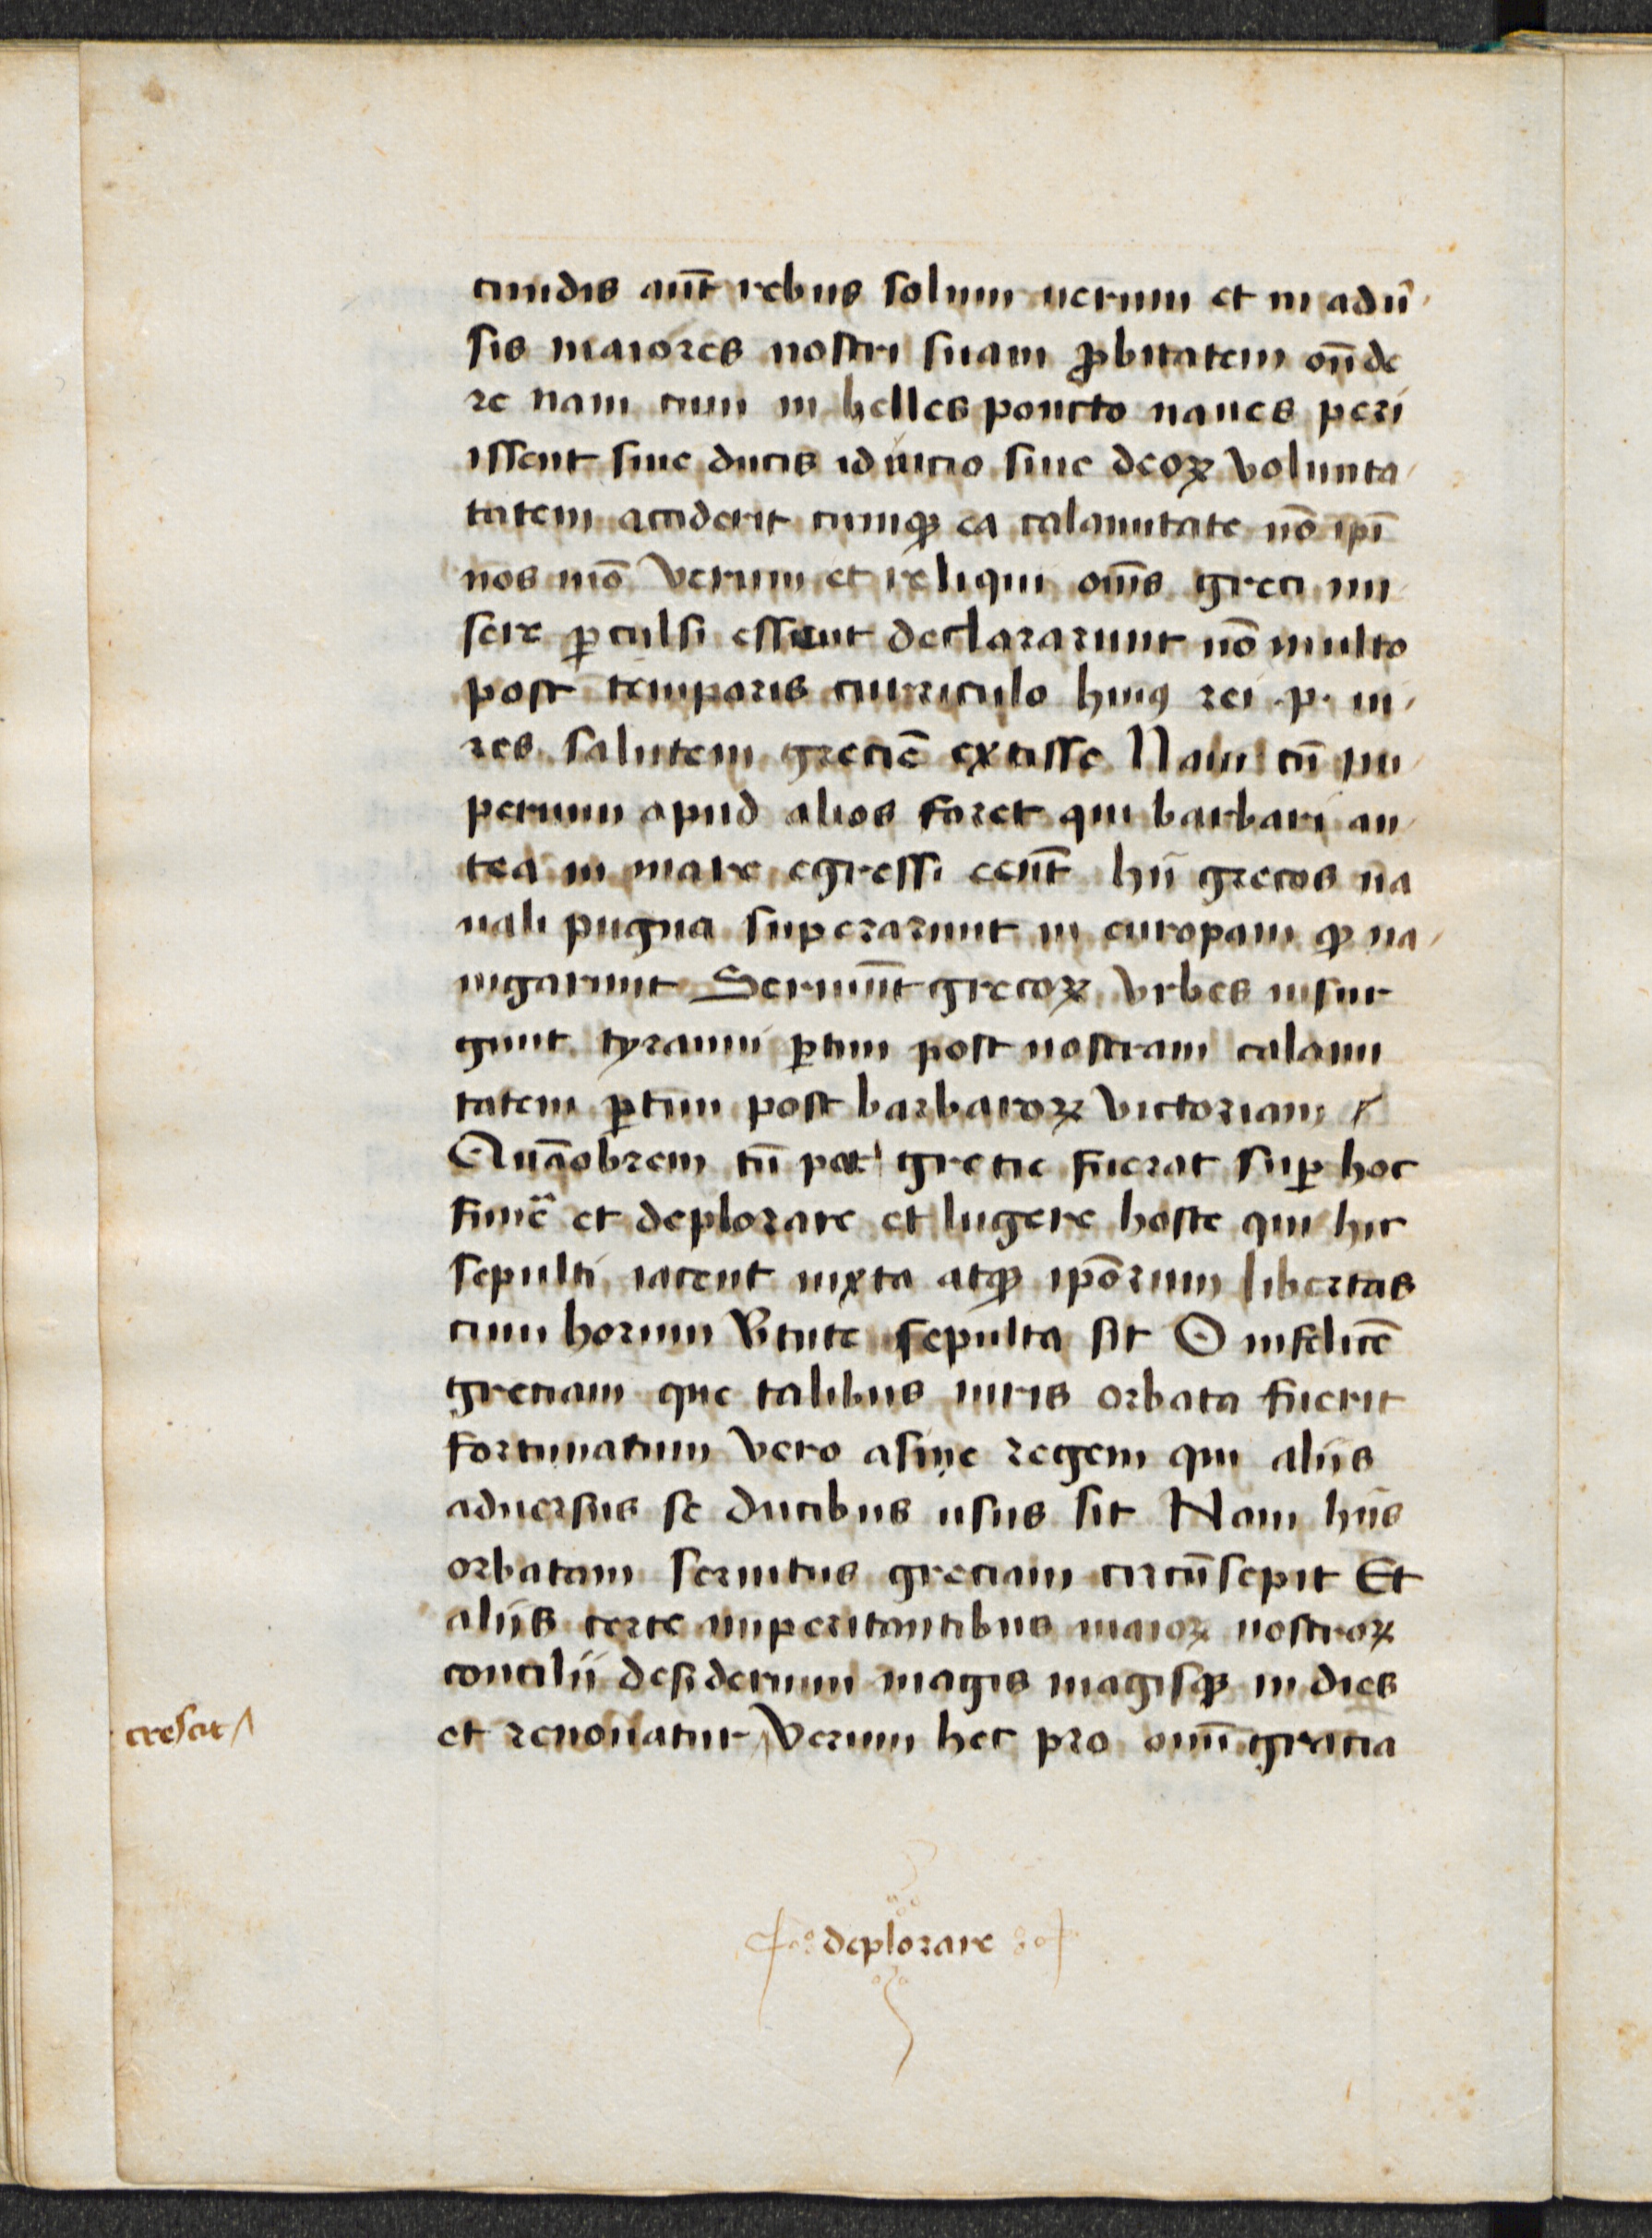 cundis aut̄ rebus solum uerum et in adu̅
sis maiores nostri suam ꝓbitatem on̅de
re nam cum in hellesponcto naues peri
issent siue ducis id uicio siue deoꝝ volunta
tatem acciderit cumqꝫ ea calamitate no̅ ip̅i
nos mo̅ verum et reliqui om̅s greci mi
sere ꝑculsi essent declararunt no̅ multo
post temporis curriculo huiꝰ rei .p. ui
res salutem grecie̅ extisse Nam cu̅ im
perium apud alios foret qui barbari an
tea in mare egressi eent̅ hii grecos na
uali pugna superarunt in europam qꝫ na
uigarunt Seruiu̅t grecoꝝ vrbes insur
gunt tyranni ꝑtim post nostram calami
tatem ꝑtim post barbaroꝝ victoriam
Qua̅obrem tu̅ par grecie fuerat suꝑ hoc
fune̅ et deplorare et lugere hoste qui hic
sepulti iacent iuxta atqꝫ ipo̅rum libertas
cum horum v̅tute sepulta sit O infelice̅
greciam que talibus uiris orbata fuerit
fortunatum vero asine regem qui aliis
aduersus se ducibus usus sit Nam hiis
orbatam seruitus greciam circu̅sepit Et
aliis certe imperitantibus maioꝝ nostroꝝ
concilii desiderium magis magisqꝫ in dies
crescit
et renouatur verum hec pro omi̅ grecia
deplorare